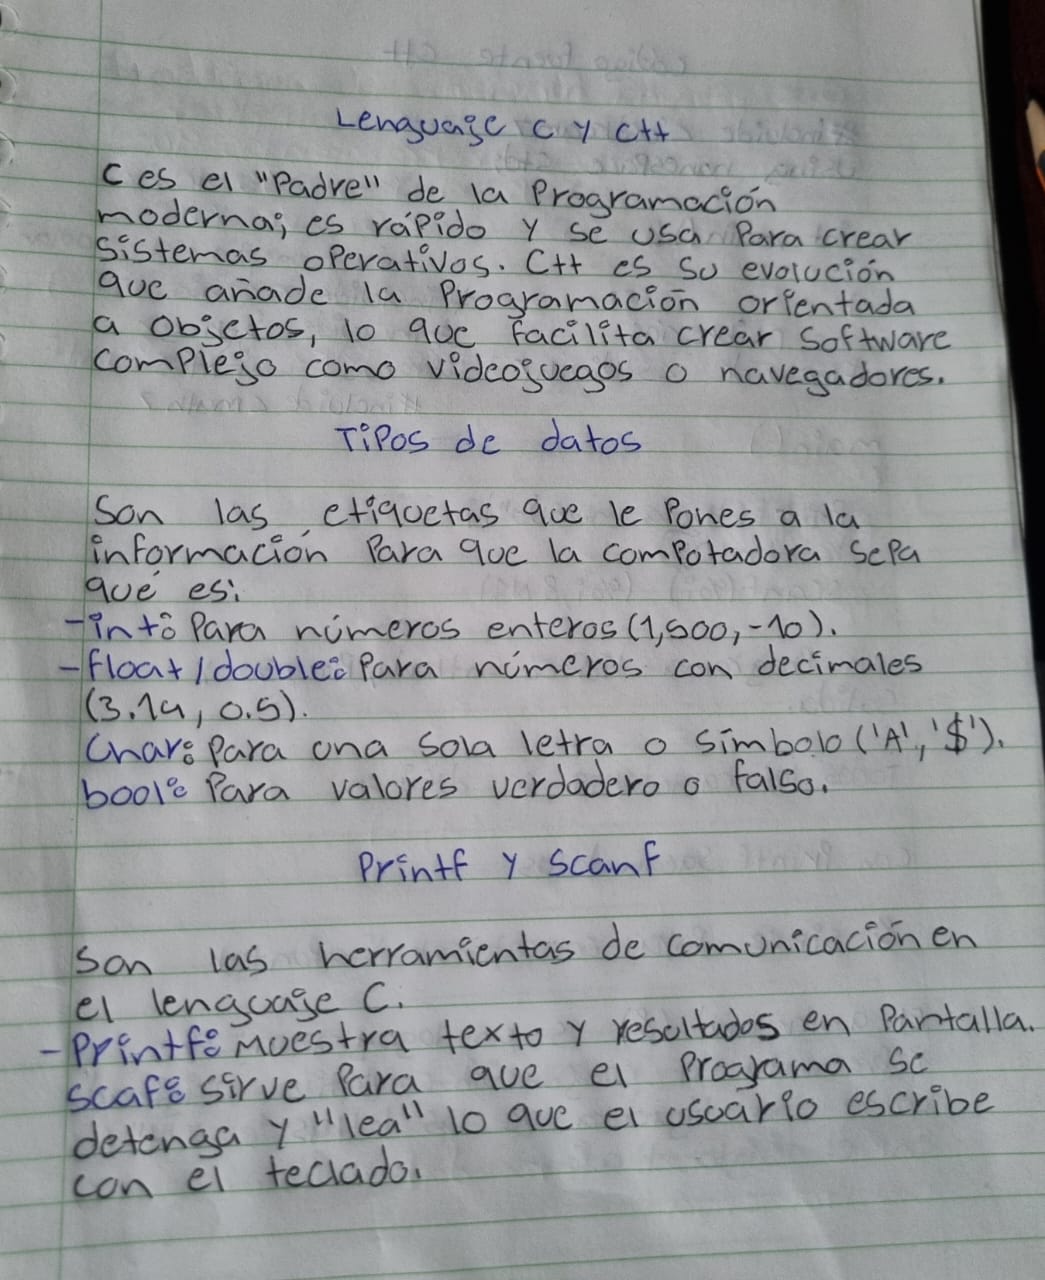 Lenguaje C y C++
C es el "Padre" de la Programación
moderna; es rápido y se usa Para crear
sistemas operativos. C++ es su evolución
que añade la Programación orientada
a objetos, lo que facilita crear software
complejo como videojuegos o navegadores.
Tipos de datos
Son las etiquetas que le Pones a la
información Para que la computadora sepa
qué es:
-int: Para números enteros (1,500,-10).
-float/double: Para números con decimales
(3.14, 0.5).
Char: Para una sola letra o símbolo ('A','$').
bool: Para valores verdadero o falso.
Printf y scanf
Son las herramientas de comunicación en
el lenguaje C.
-Printf: Muestra texto y resultados en Pantalla.
scaf: sirve Para que el Programa se
detenga y "lea" lo que el usuario escribe
con el teclado.